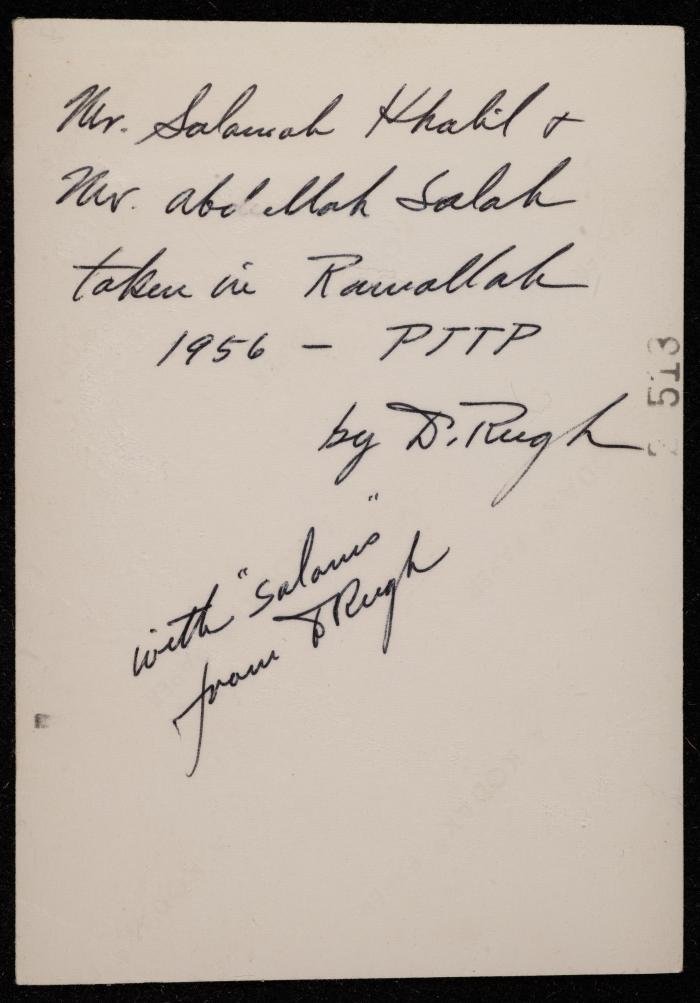 Mr. Salamah Khalil &
Mr. Abdellah Salah
taken in Ramallah
1956 - PTTP
by D. Rugh
with "salams"
from D Rugh
513